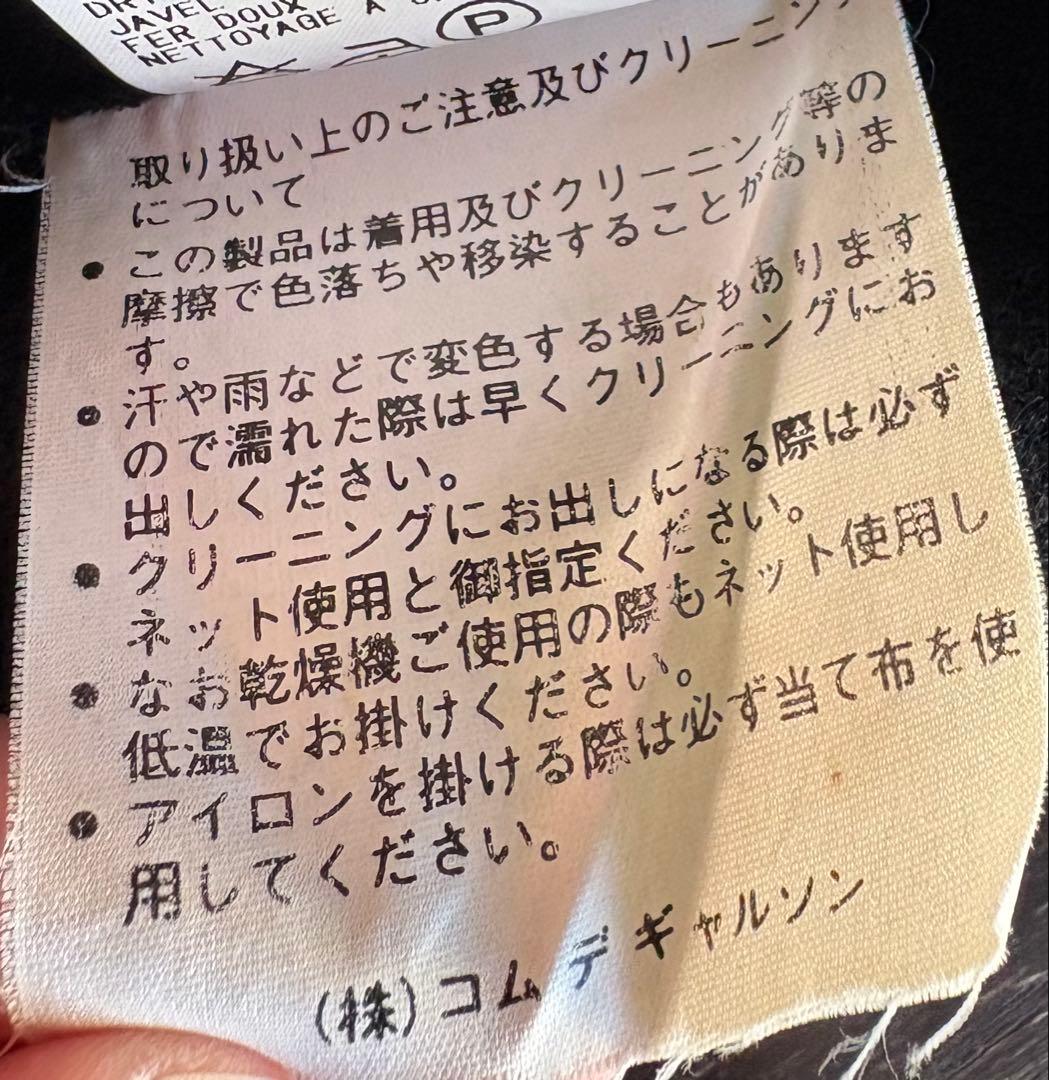 JAVEL
FER DOUX
NETTOYAGE A
P
取り扱い上のご注意及びクリーニン
について
● この製品は着用及びクリーニング等の
摩擦で色落ちや移染することがありま
す。
● 汗や雨などで変色する場合もあります
ので濡れた際は早くクリーニングにお
出しください。
● クリーニングにお出しになる際は必ず
ネット使用と御指定ください。
● なお乾燥機ご使用の際もネット使用し
低温でお掛けください。
● アイロンを掛ける際は必ず当て布を使
用してください。
(株)コム デ ギャルソン